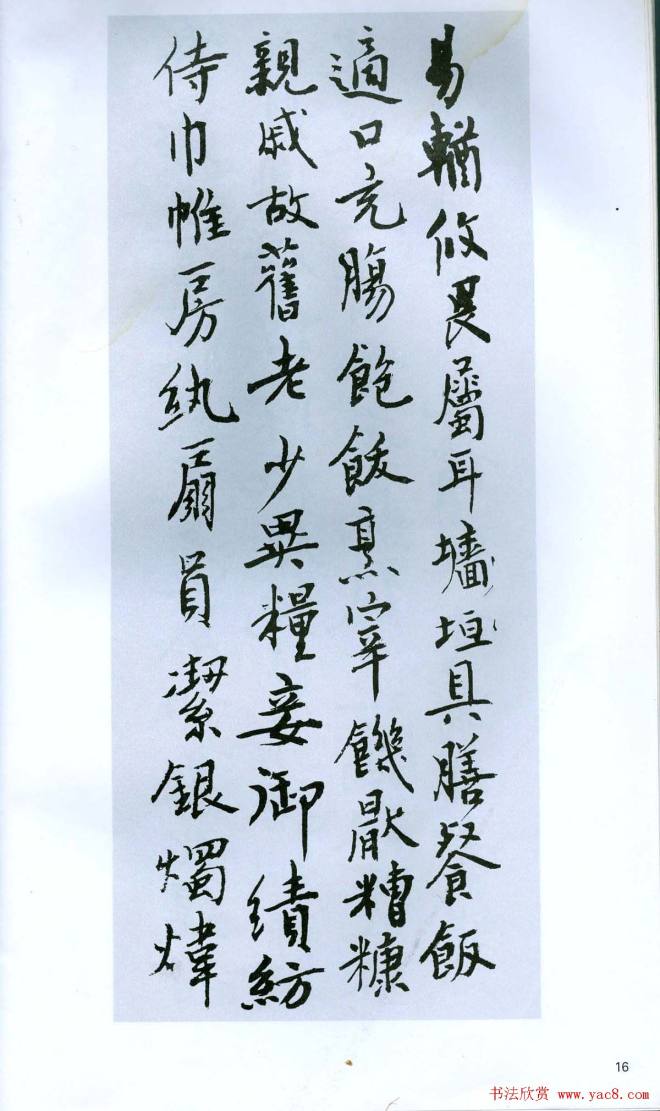 易輶攸畏屬耳墻垣具膳餐飯
適口充腸飽飫烹宰饑猒糟糠
親戚故舊老少異糧妾御績紡
侍巾帷房紈扇員潔銀燭煒
16
书法欣赏 www.yac8.com